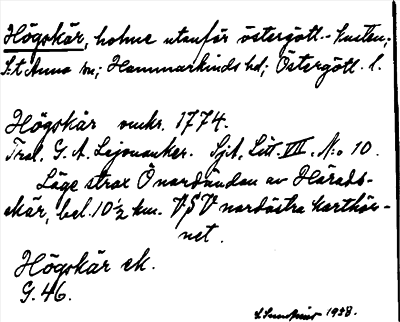 Högskär, holme utanför östergötl.-kusten;
S:t Anna sn; Hammarkinds hd; Östergötl. l.
Högskär omkr. 1774.
Trol. G. A. Lejonanker. Sjk. Litt. VII. N:o 10.
Läge strax O nordändan av Härads-
skär, bel. 10 1/2 km. VSV nordöstra karthör-
net.
Högskär ek.
G. 46.
1938.